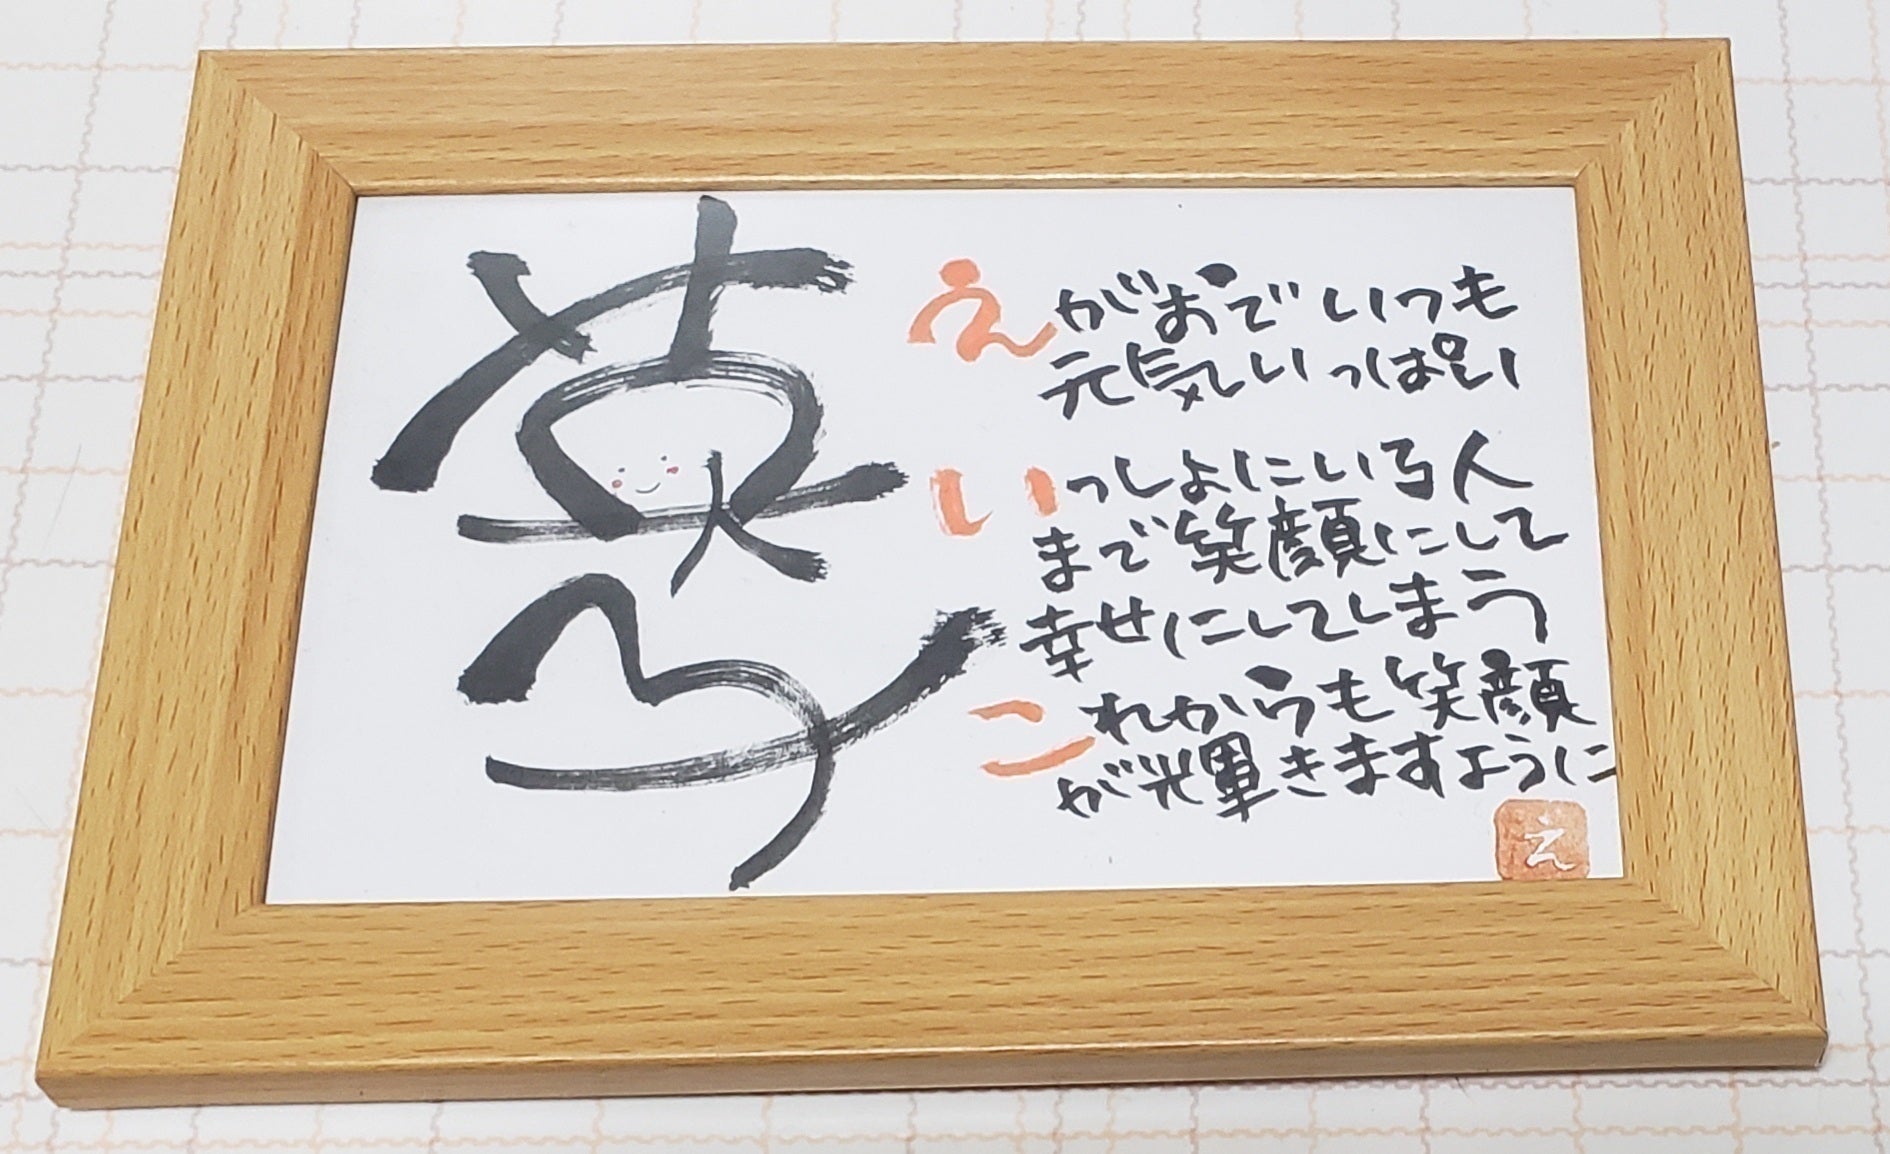 英子
えがおでいつも
元気いっぱい
いっしょにいる人
まで笑顔にして
幸せにしてしまう
これからも笑顔
が光輝きますように
え